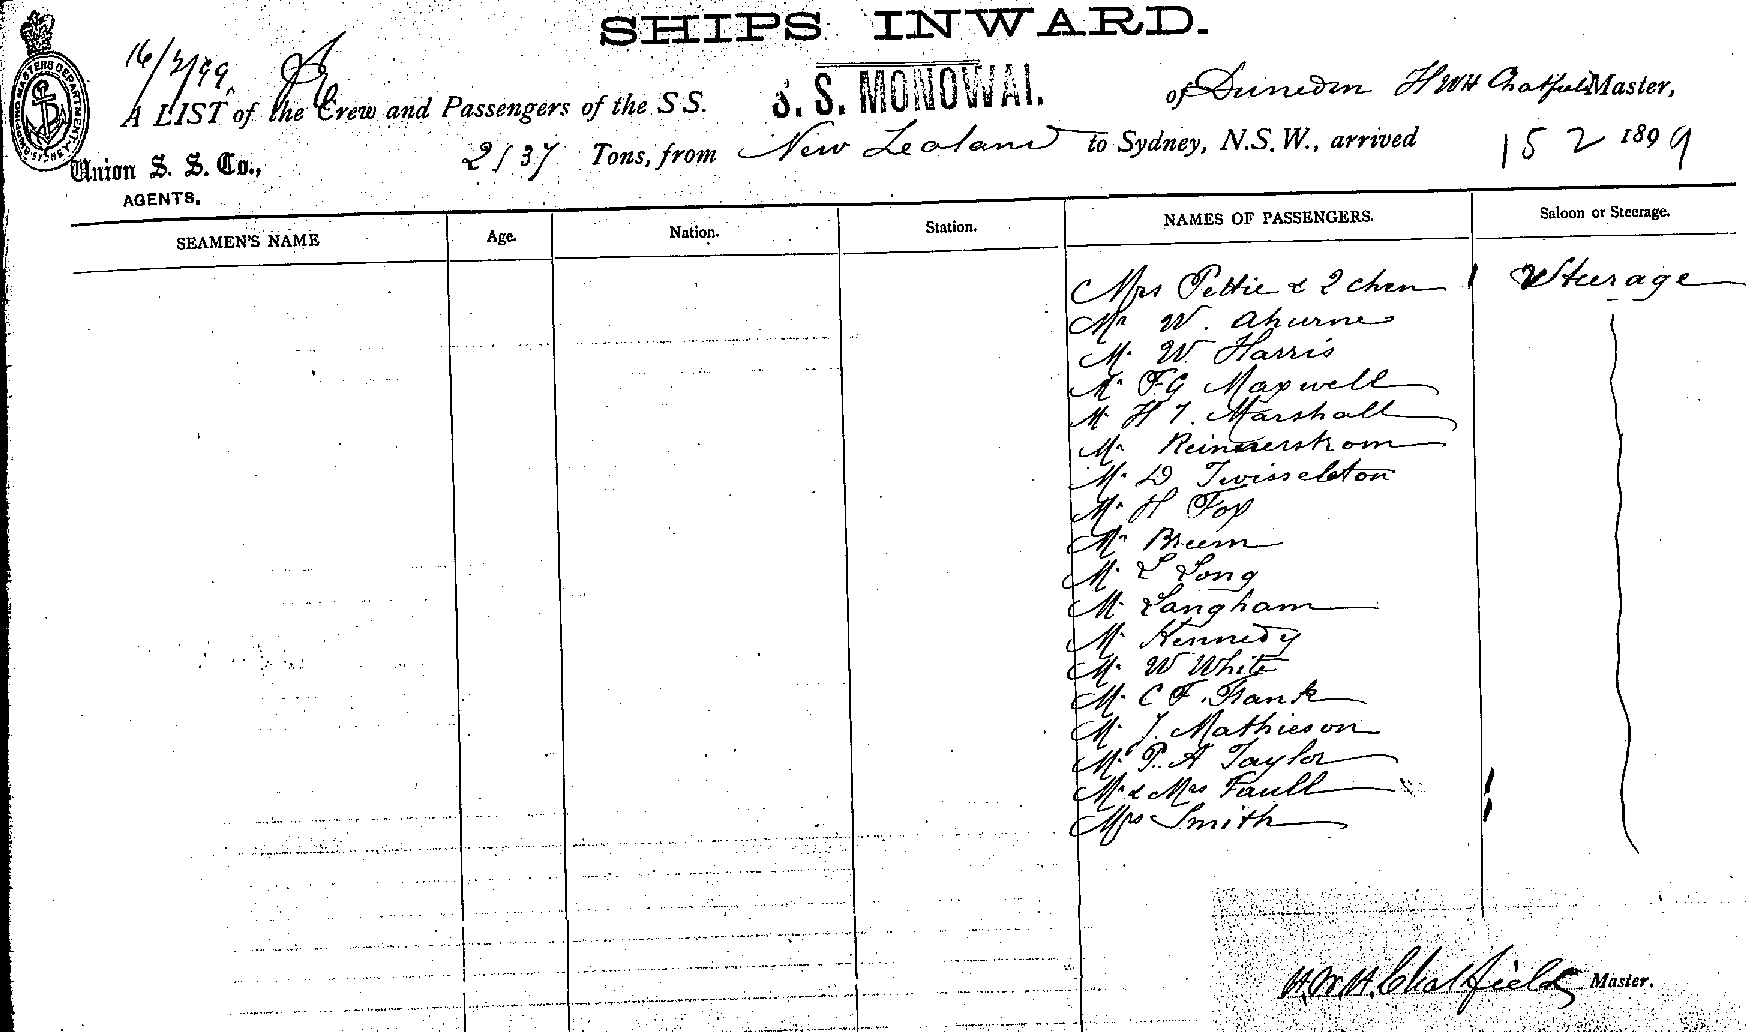 SHIPS INWARD.
16/2/99
A LIST of the Crew and Passengers of the S S. S. S. MONOWAI. of Dunedin H W H Chatfield Master,
Union S. S. Co., 2137 Tons, from New Zealand to Sydney, N.S.W., arrived 15 2 1899
AGENTS.
SEAMEN'S NAME Age. Nation. Station. NAMES OF PASSENGERS. Saloon or Steerage.
Mrs Pettie & 2 chen Steerage
Mr W. Ahurne
Mr W. Harris
Mr F G Maxwell
Mr H T. Marshall
Mr
Mr D Twisselton
Mr H Fox
Mr Breem
Mr L Long
Mr Langham
Mr Kennedy
Mr W White
Mr C F. Frank
Mr J. Mathieson
Mr P. A Taylor
Mr & Mrs Faull
Mrs Smith
H.W.H. Chatfield Master.